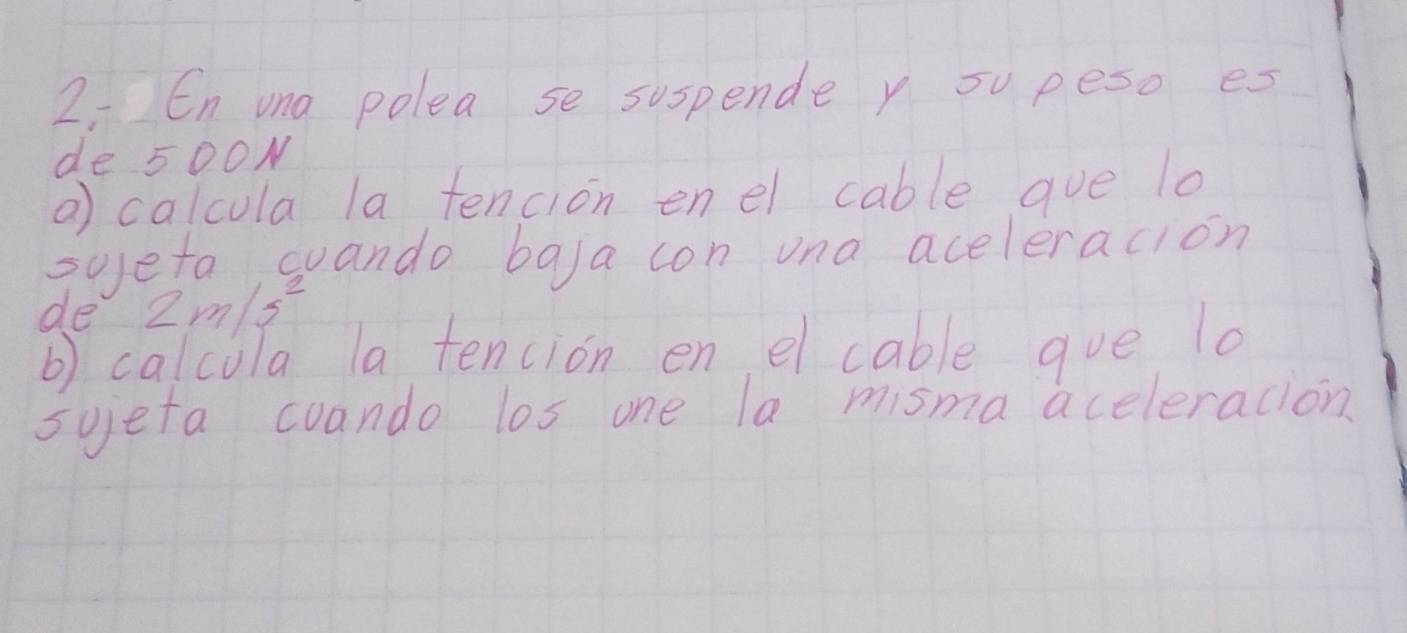 2.- En una polea se suspende y su peso es
de 500N
a) calcula la tención en el cable que lo
sujeta cuando baja con una aceleración
de 2m/s²
b) calcula la tención en el cable que lo
sujeta cuando los une la misma aceleración.